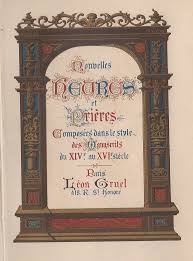 Nouvelles
HEURES
et
Prières
Composées dans le style
des Manuscrits
du XIVe au XVIe siècle
Paris
Léon Gruel
418. R. St Honoré